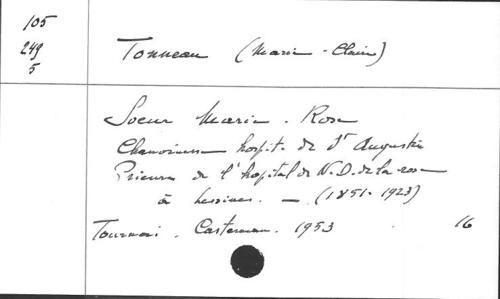 105
249
5
Tonneau (Marie-Claire)
Soeur Marie-Rose
Chanoinesse hospit. de St Augustin
Prieure de l'hopital de N.D. de la rose
à Lessines. — (1851-1923)
Tournai. Casterman. 1953 16